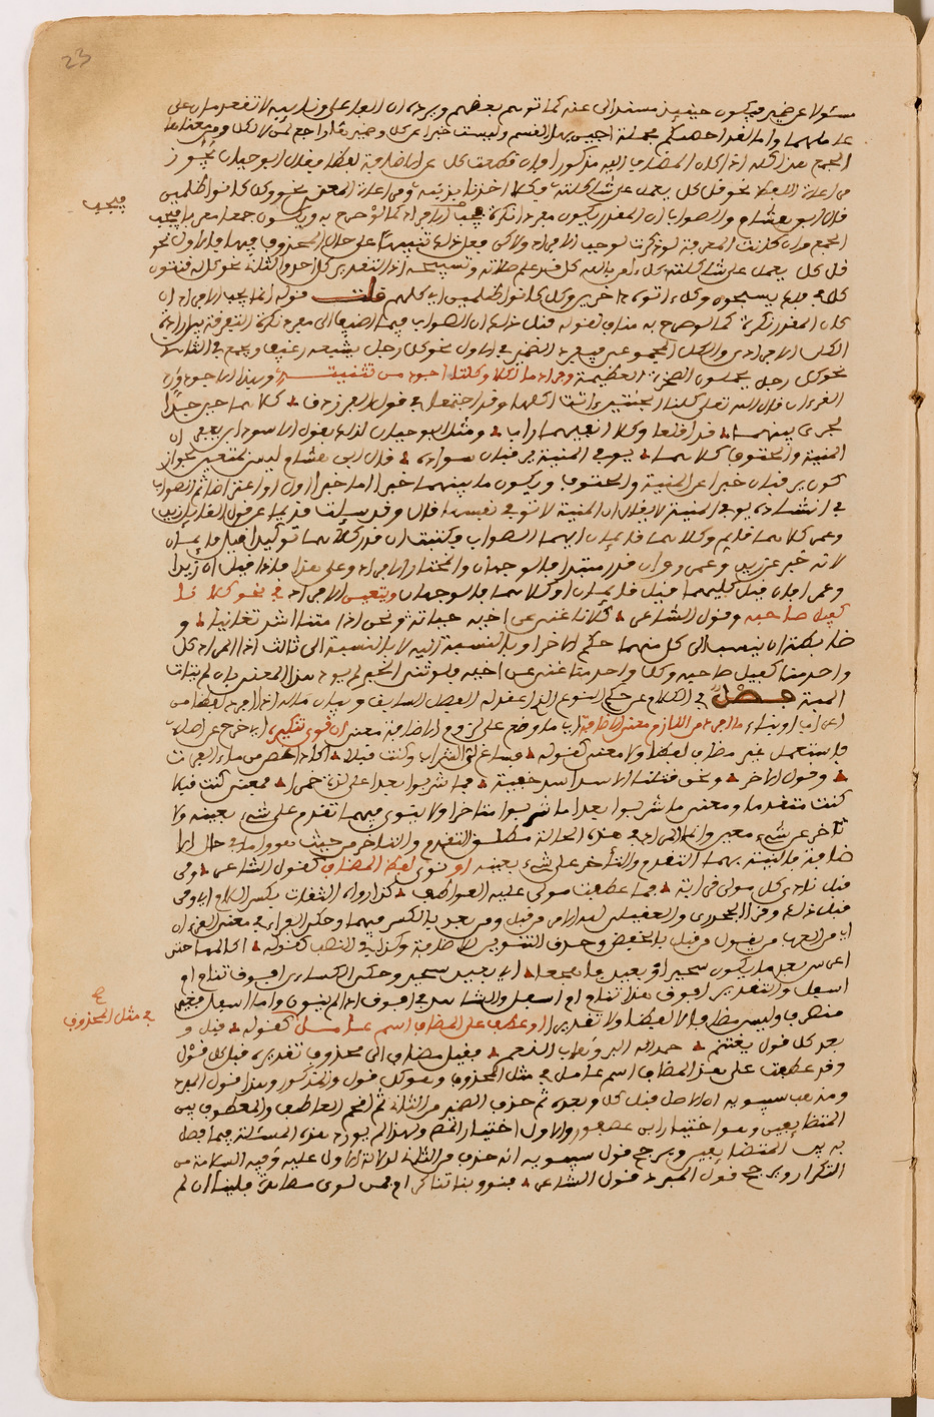 23
مسئولا عن ضمير فيكون حينئذ مسندا الى عنه كما توهم بعضهم ويرده ان الفاعل ونايبه لا تقعد مان على
عاملهما واما لقد احصاهم فجملة اجيب بها القسم وليست خبرا عن كل وضميرها راجع لمن لا لكل ومن معناها
الجمع هذا كله اذا كان المضاف اليه مذكورا فان قطعت كل عن الاضافة لفظا فقال ابو حيان يجوز
مراعاة اللفظ نحو قل كل يعمل على شاكلته وكلا اخذنا بذنبه ومراعاة المعنى نحو وكل كانوا ظالمين
قال ابن هشام والصواب ان المقدر يكون مفردا نكرة فيجب الافراد كما لو صرح به ويكون جمعا معرفا فيجب
الجمع وان كانت المعرفة لو ذكرت لوجب الافراد ولكن فعل ذلك تنبيها على حال المحذوف فيهما فالاول نحو
قل كل يعمل على شاكلته كل ءامن بالله كل قد علم صلاته وتسبيحه اذ التقدير كل احد والثاني نحو كل له قانتون
كل في فلك يسبحون وكل اتوه داخرين وكل كانوا ظالمين اي كلهم قلت قوله انما يجب الافراد ان
كان المقدر نكرة كما لو صرح به مناف لقوله قبل ذلك ان الصواب فيما اضيف الى مفرد نكرة التفرقة بين ارادة
الكل الافرادي والكل المجموعي فيفرد الضمير في الاول نحو كل رجل يشبعه رغيف ويجمع في الثاني
نحو كل رجل يحملون الصخرة العظيمة وافراد ما لكلا وكلتا اجود من تثنيته وبهذا الاجود جاء
القرءان قال الله تعلى كلتا الجنتين ءاتت اكلها وقد اجتمعا في قول الفرزدق كلاهما حين جد ا
لجري بينهما قد اقلعا وكلا انفيهما رابي ومثل ابو حيان لذلك بقول الاسود بن يعفر ان
المنية والحتوف كلاهما يوفي المنية يرقبان سوادي قال ابن هشام ليس بمتعين لجواز
كون يرقبان خبرا عن المنية والحتوف ويكون ما بينهما خبرا اما خبرا اول او اعتراضا ثم الصواب
في انشاده يوفي المخارم لا يقال ان المنية لا توفي نفسها قال وقد سئلت قديما عن قول القايل زيد
وعمرو كلاهما قايم وكلاهما قايمان ايهما الصواب فكتبت ان قدر كلاهما توكيدا قيل قايمان
لانه خبر عن زيد وعمرو وان قدر مبتدا فالوجهان والمختار الافراد وعلى هذا فاذا قيل ان زيدا
وعمرا فان قيل كليهما قيل قايمان او كلاهما فالوجهان ويتعين الافراد في نحو كلانا
كفيل صاحبه وقول الشاعر كلانا غني عن اخيه حياته ونحن اذا متنا اشد تغانيا و
ضابطه ان ينسب الى كل منهما حكم الاخر او بالنسبة اليه لا بالنسبة الى ثالث اذ المراد كل
واحد منا كفيل صاحبه وكل واحد منا غني عن اخيه فلو ثني الخبر لم يود هذا المعنى بان لم يتات
البتة فصل في الكلام على حكم النوع الذي عقد له الفصل السابق وبيان ما له اذا افرد لفظا من
اعراب او بناء ما افرد من اللازم معنى الاضافة اي ما وضع على لزوم الاضافة معنى ان نوي تنكيره اي خرج عن اصله
فاستعمل غير مضاف لفظا ولا معنى كقوله فساغ لي الشراب وكنت قبلا اكاد اغص من ماء الفرات
وقول الاخر ونحن قتلنا الاسد اسد خفية فما شربوا بعدا على لذة خمرا فمعنى كنت قبلا
كنت متقدما ومعنى ما شربوا بعدا ما شربوا متاخرا ولا ينوى فيهما تقدم على شيء بعينه ولا
تاخر عن شيء معين وانما المراد في هذه الحالة مطلق التقدم والتاخر من حيث هو واما في حال الا
ضافة فالنية بهما التقدم والتأخر على شيء بعينه او نوي لفظ المضاف كقول الشاعر ومن
قبل نادى كل مولى قرابة فما عطفت مولى عليه العواطف كذا رواه الثقات بكسر اللام اي ومن
قبل ذلك وقرا الجحدري والعقيلي لله الامر من قبل ومن بعد بالكسر فيهما وحكى الفراء في معنى القرءان
ان من العرب من يقول من قبل بالخفض وحذف التنوين للاضافة وكذلك في النصب كقوله اكابدها حتى
اعرس بعد ما يكون سحيرا او بعيد فاهجعا اي بعيد سحير وحكى الكسائي افوق تنام ام
اسفل والتقدير افوق هذا تنام ام اسفل والشاهد في افوق اذ لم ينون واما اسفل فغير
منصرف وليس مضافا لا لفظا ولا تقديرا او عطف على المضاف اسم عامل كقوله قبل و
بعد كل قول يغتنم حمد الاله البر وهاب النعم فقبل مضاف الى محذوف تقديره قبل كل قول
وقد عطف على هذا المضاف اسم عامل في مثل المحذوف وهو كل قول المذكور وهذا قول المبرد
ومذهب سيبويه ان الاصل قبل كل وبعده ثم حذف الضمير من الثاني ثم اقحم العاطف والمعطوف بين
المتضايفين وهو اختيار ابن عصفور والاول اختيار الناظم ولهذا لم يورد هذه المسئلة فيما فصل
به بين المتضايفين ويرجح قول سيبويه انه حذف من الثاني لدلالة الاول عليه وفيه السلامة من
التكرار ويرجح قول المبرد قول الشاعر
فيجب
في مثل المحذوف